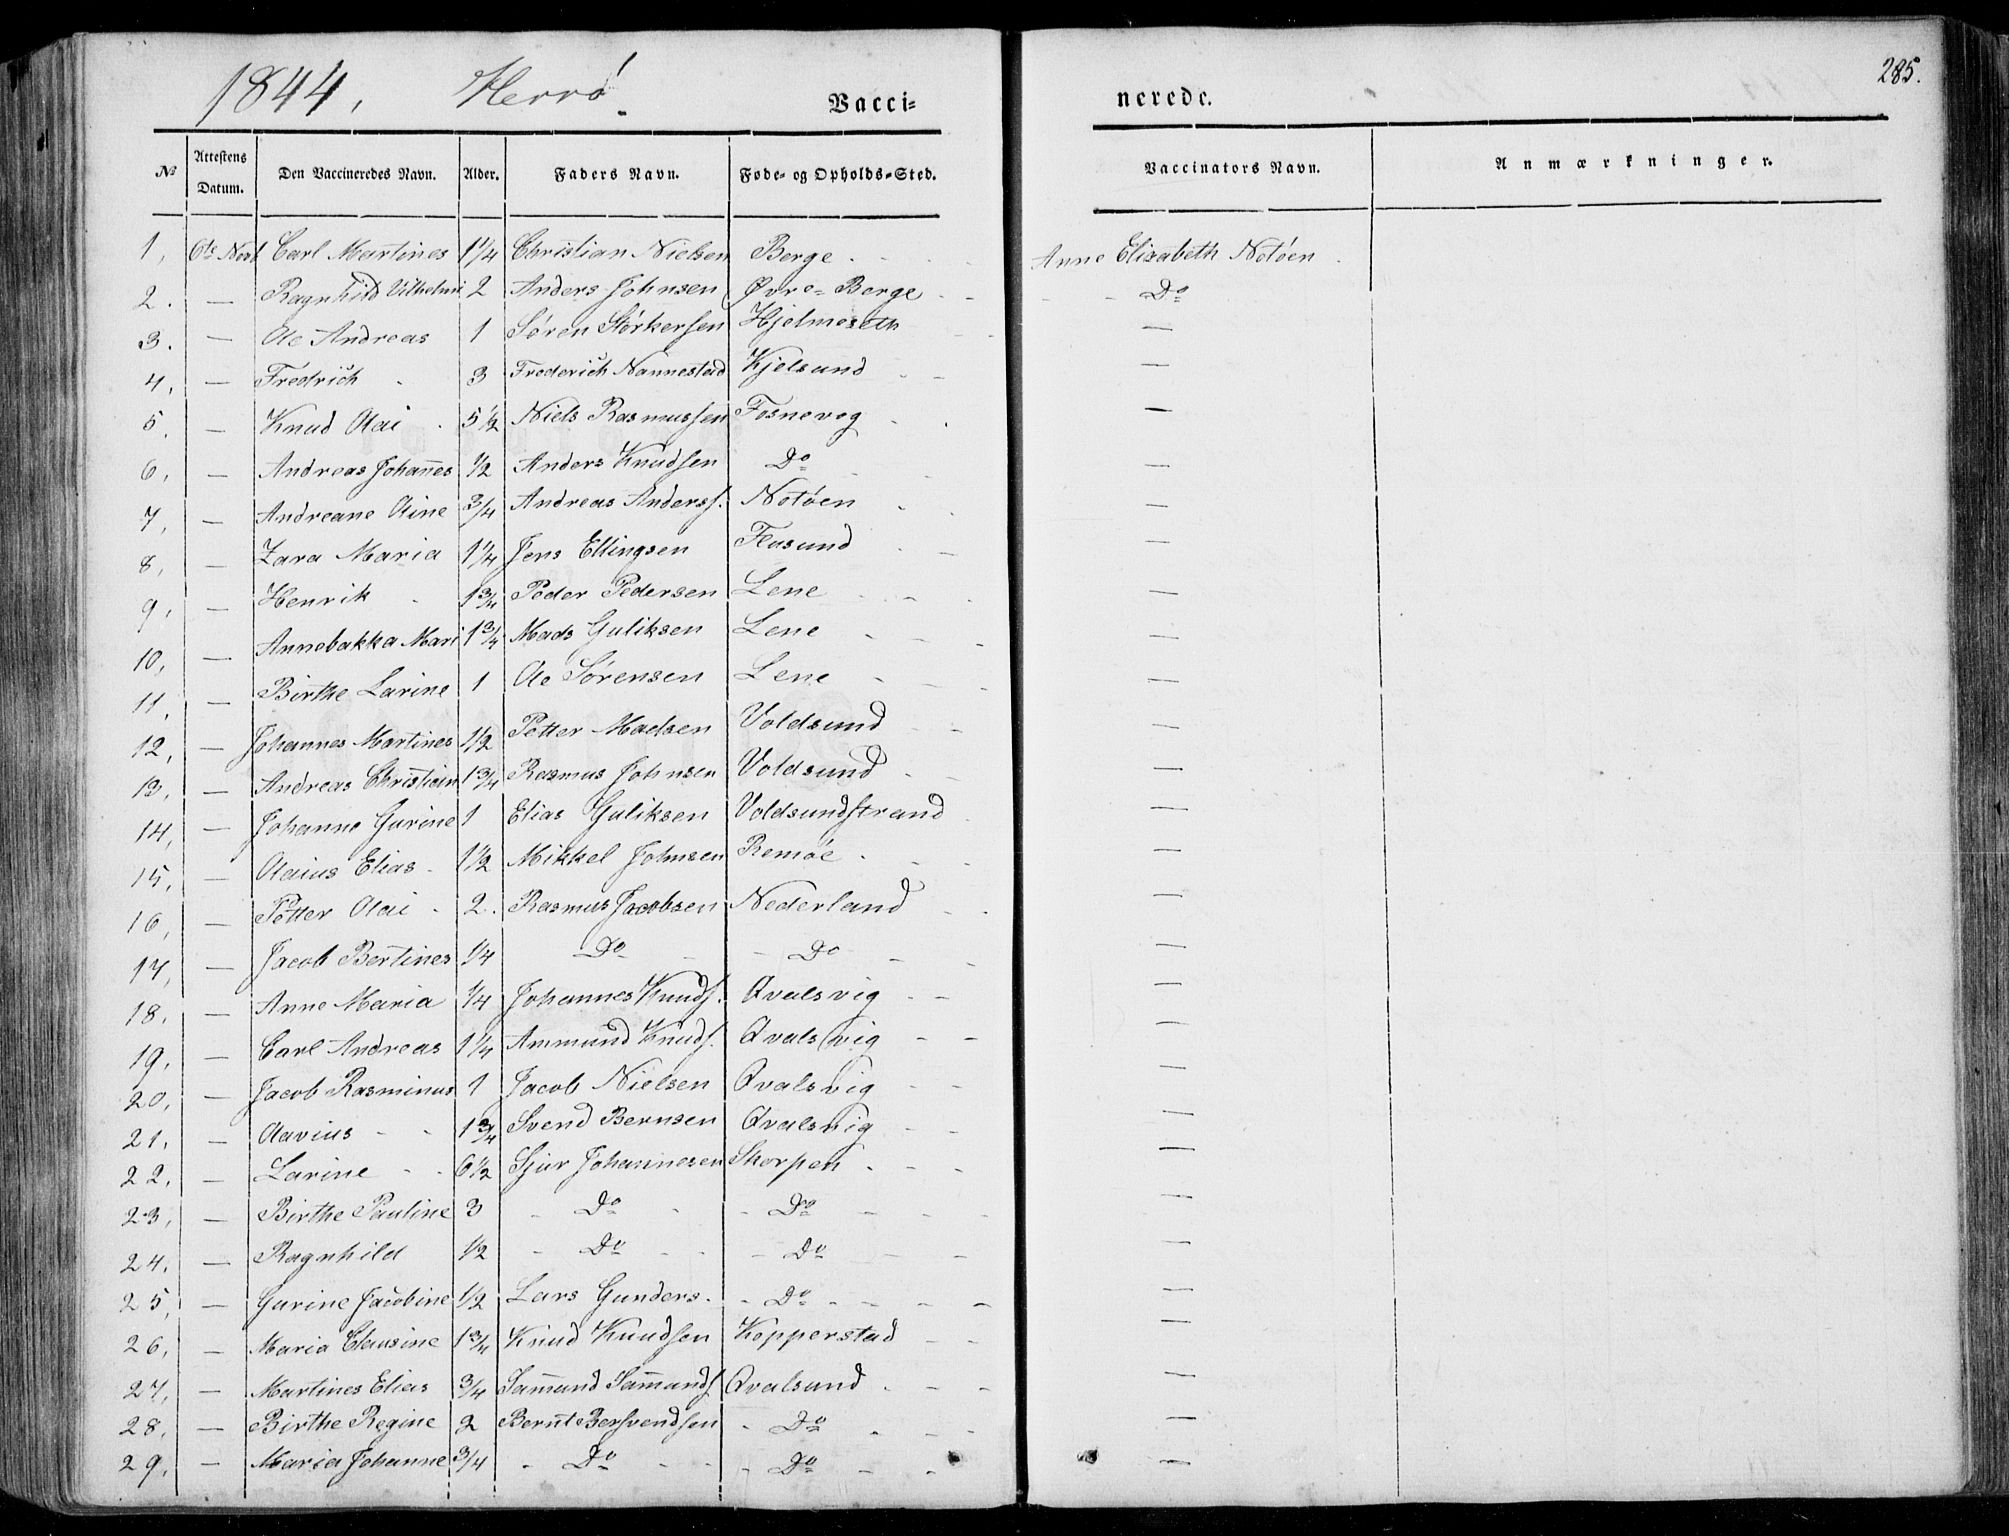 1844, Herrö. Vacci= nerede. 285.
№ Attestens Datum. Den Vaccineredes Navn. Alder. Faders Navn. Føde- og Opholds-Sted. Vaccinators Navn. Anmærkninger.
1, 6te Novb Carl Martines 1 1/4 Christian Nielsen Berge - - Anne Elisabeth Notöen
2. — Ragnhild Vilhelmi 2 Anders Johnsen Øvre=Berge - - - Do
3. — Ole Andreas 1 Sören Störkersen Hjelmeseth —
4, — Fredrich 3 Frederich Nannestad Kjelsund - - —
5. — Knud Olai 5 1/2 Niels Rasmussen Fosnevog - - —
6, — Andreas Johannes 1/2 Anders Knudsen Do - —
7, — Andreane Oline 3/4 Andreas Anderss. Notöen - - —
8, — Zara Maria 1 1/4 Jens Ellingsen Flusund - - —
9, — Henrik 1 3/4 Peder Pedersen Lene - - - —
10, — Annebakka Mari 1 3/4 Mads Guliksen Lene - - - —
11, — Birthe Larine 1 Ole Sörensen Lene - - - —
12, — Johannes Martines 1/2 Petter Madsen Voldsund - - —
13, — Andreas Christian 1 3/4 Rasmus Johnsen Voldsund - - —
14, — Johanne Gurine 1 Elias Guliksen Voldsundstrand - —
15, — Olaius Elias 1 1/2 Mikkel Johnsen Remöe - - - —
16, — Petter Olai 2. Rasmus Jacobsen Nederland - - —
17, — Jacob Bertines 1/4 Do - - Do - - —
18, — Anne Maria 1/4 Johannes Knuds. Qvalsvig - - —
19, — Carl Andreas 1 1/4 Ammund Knuds. Qvalsvig - - —
20, — Jacob Rasminus 1 Jacob Nielsen Qvalsvig - - —
21. — Olavius - - 1 3/4 Svend Bernsen Qvalsvig - - —
22. — Larine - - 6 1/2 Sjur Johannesen Skorpen - - - —
23, — Birthe Pauline 3 - Do - - Do - - - —
24. — Ragnhild 1/2 - Do - - - Do - - —
25, — Gurine Jacobine 1/2 Lars Gunders. - Do - - - - —
26, — Maria Clausine 1 3/4 Knud Knudsen Kopperstad - - —
27, — Martines Elias 3/4 Samund Samunds. Qvalsund - - - —
28, — Birthe Regine 2 Bernt Bersvendsen - Do - - - —
29, — Maria Johanne 3/4 - Do - - - Do - - —